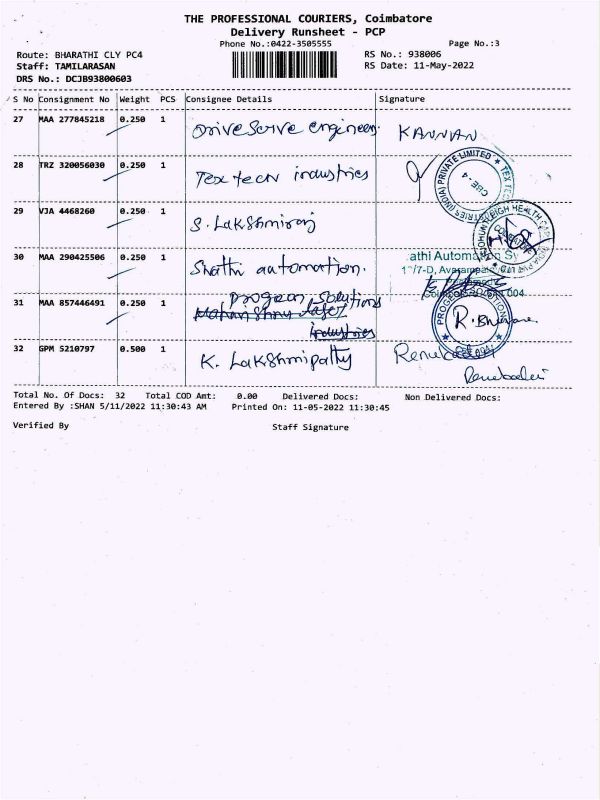 THE PROFESSIONAL COURIERS, Coimbatore
Delivery Runsheet - PCP
Phone No.:0422-3505555
Page No.:3
Route: BHARATHI CLY PC4
RS No.: 938006
Staff: TAMILARASAN
RS Date: 11-May-2022
DRS No.: DCJB93800603
S No Consignment No Weight PCS Consignee Details Signature
27 MAA 277845218 0.250 1 Drive Serve engineers. KANNAN
28 TRZ 320056030 0.250 1 Tex tech industries
(INDIA) PRIVATE LIMITED ★ TEX TEC
CBE-4
29 VJA 4468260 0.250 1 S. Lakshmiraj
30 MAA 290425506 0.250 1 Shathi automation.
athi Automation Sy
31 MAA 857446491 0.250 1 progean solutions
industries
R. Bhuvane
32 GPM 5210797 0.500 1 K. Lakshmipathy
Total No. Of Docs: 32 Total COD Amt: 0.00 Delivered Docs: Non Delivered Docs:
Entered By :SHAN 5/11/2022 11:30:43 AM Printed On: 11-05-2022 11:30:45
Verified By Staff Signature